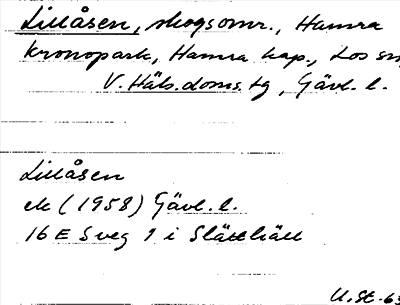 Lillåsen, skogsomr., Hamra
kronopark, Hamra kap., Los sn,
V. Häls. doms. tg, Gävl. l.
Lillåsen
ek (1958) Gävl. l.
16 E Sveg 9 i
U. St. 63